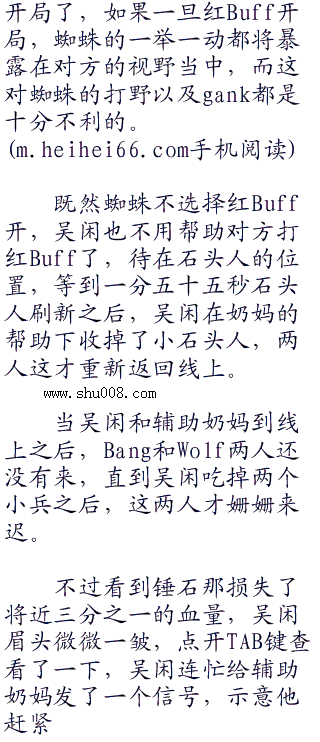 开局了，如果一旦红Buff开
局，蜘蛛的一举一动都将暴
露在对方的视野当中，而这
对蜘蛛的打野以及gank都是
十分不利的。
(m.heihei66.com手机阅读)
既然蜘蛛不选择红Buff
开，吴闲也不用帮助对方打
红Buff了，待在石头人的位
置，等到一分五十五秒石头
人刷新之后，吴闲在奶妈的
帮助下收掉了小石头人，两
人这才重新返回线上。
www.shu008.com
当吴闲和辅助奶妈到线
上之后，Bang和Wolf两人还
没有来，直到吴闲吃掉两个
小兵之后，这两人才姗姗来
迟。
不过看到锤石那损失了
将近三分之一的血量，吴闲
眉头微微一皱，点开TAB键查
看了一下，吴闲连忙给辅助
奶妈发了一个信号，示意他
赶紧